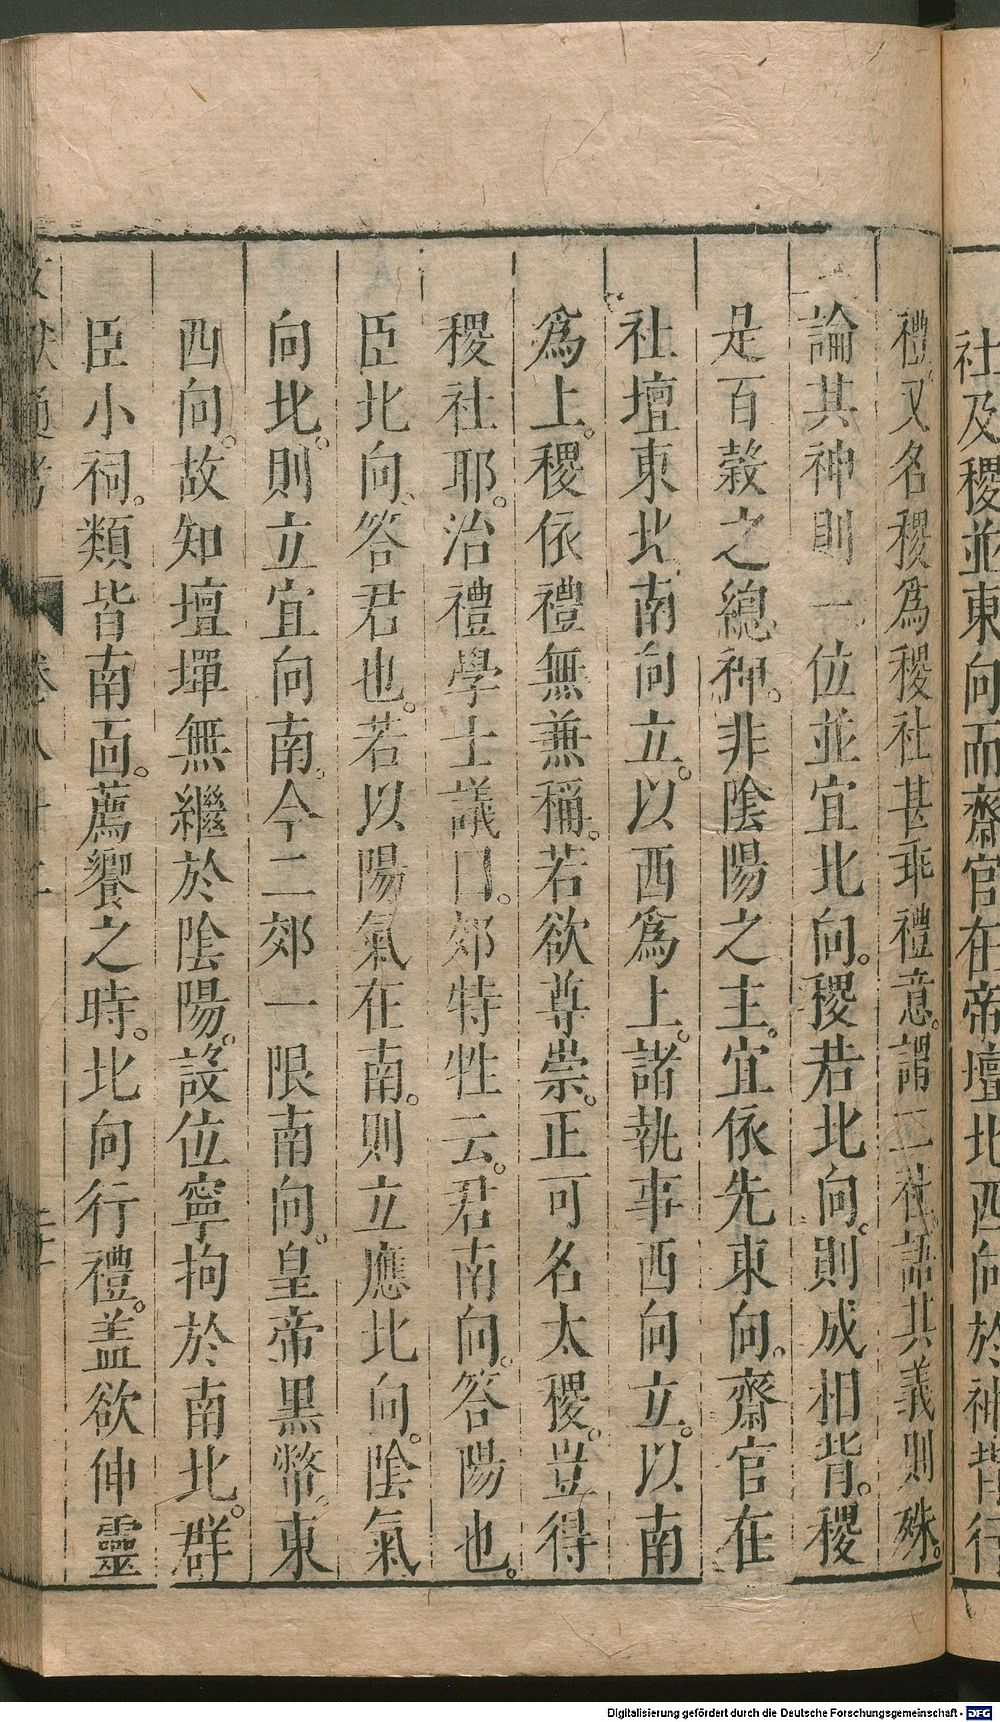 社及稷並東向而齋官在帝壇北西向於神背行
禮又名稷爲稷社甚乖禮意謂二社語其義則殊
論其神則一位並宜北向稷若北向則成相背稷
是百穀之總神非陰陽之主宜依先東向齋官在
社壇東北南向立以西爲上諸執事西向立以南
爲上稷依禮無兼稱若欲尊崇正可名太稷豈得
稷社耶治禮學士議曰郊特牲云君南向答陽也
臣北向答君也若以陽氣在南則立應北向陰氣
向北則立宜向南今二郊一限南向皇帝黑幣東
西向故知壇墠無繼於陰陽設位寧拘於南北群
臣小祠類皆南面薦饗之時北向行禮盖欲伸靈
文獻通考 卷八十二
Digitalisierung gefördert durch die Deutsche Forschungsgemeinschaft - DFG